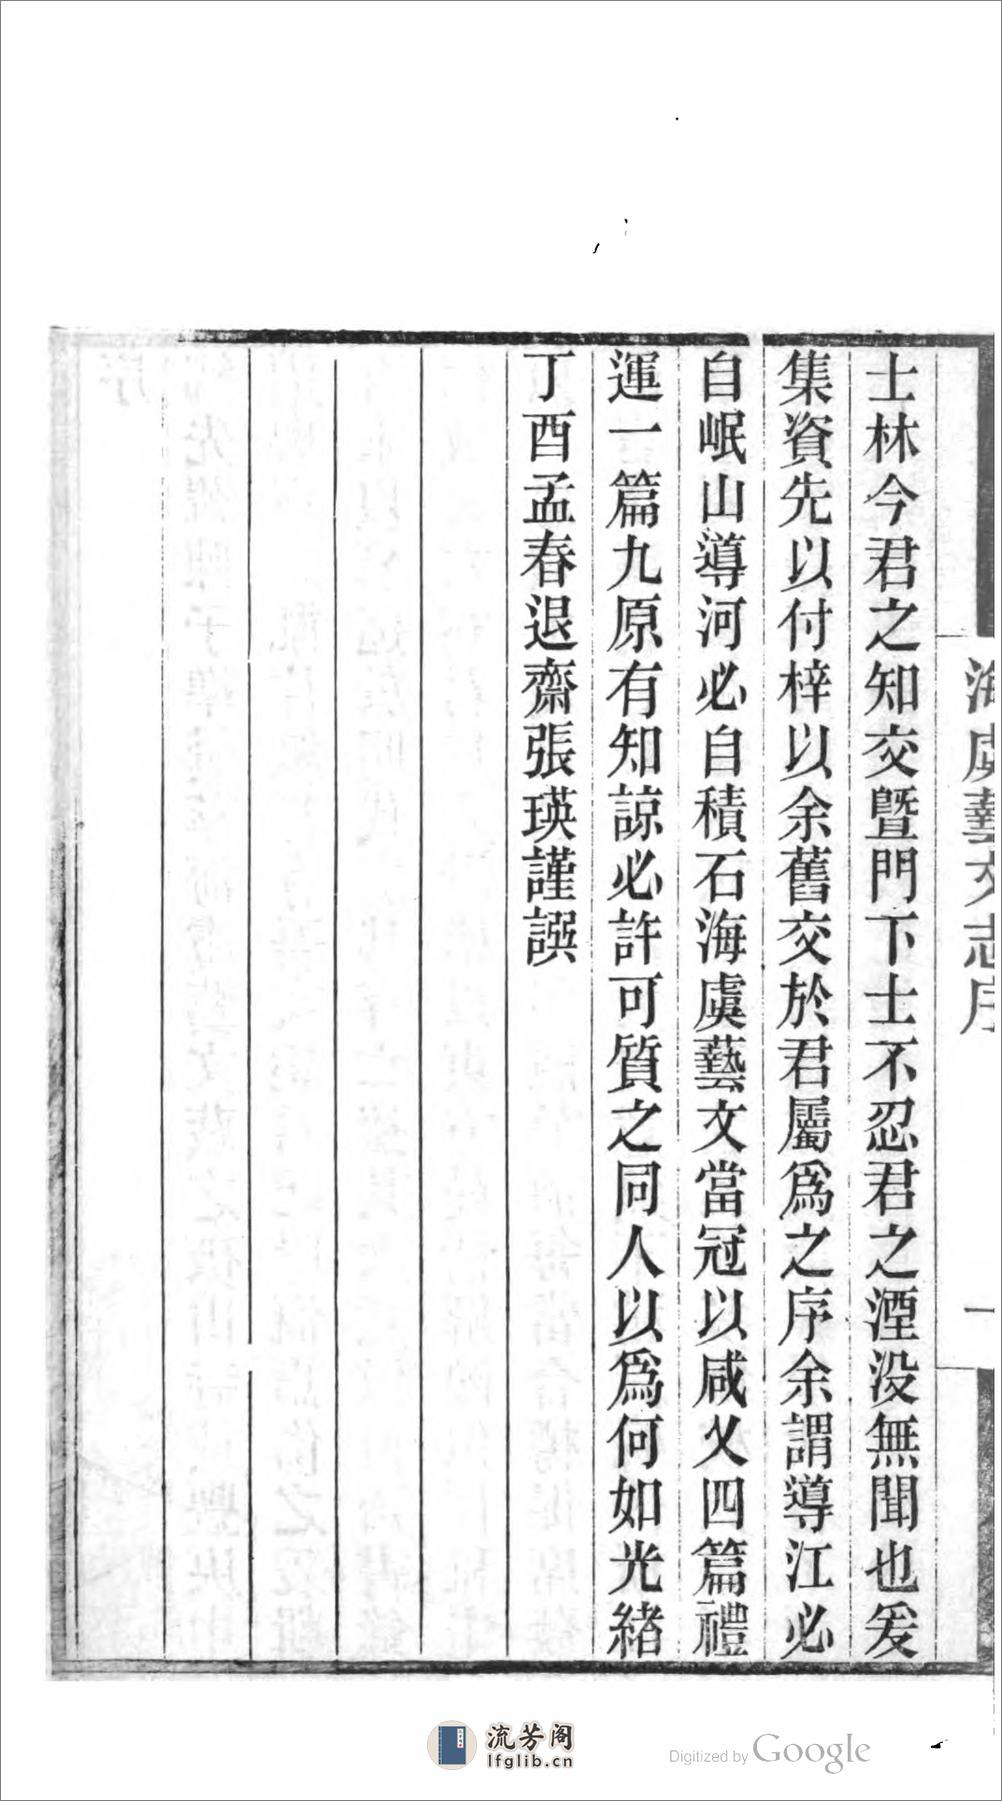 士林今君之知交曁門下士不忍君之湮没無聞也爰
集資先以付梓以余舊交於君屬爲之序余謂導江必
自岷山導河必自積石海虞藝文當冠以咸乂四篇禮
運一篇九原有知諒必許可質之同人以爲何如光緒
丁酉孟春退齋張瑛謹譔
海虞藝文志序
一
流芳阁
lfglib.cn
Digitized by Google